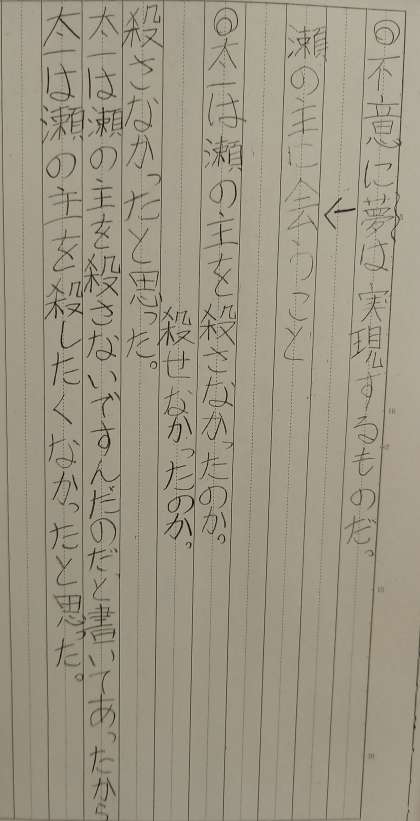 ◎不意に夢は実現するものだ。
←
瀬の主に会うこと
◎太一は瀬の主を殺さなかったのか。
殺せなかったのか。
殺さなかったと思った。
太一は瀬の主を殺さないですんだのだと書いてあったから
太一は瀬の主を殺したくなかったと思った。